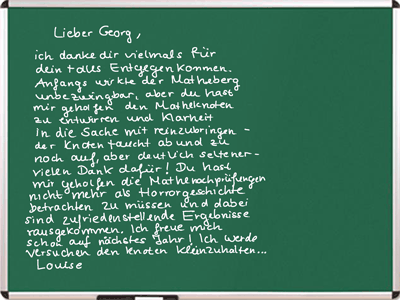 Lieber Georg,
ich danke dir vielmals für
dein tolles Entgegenkommen.
Anfangs wirkte der Matheberg
unbezwingbar, aber du hast
mir geholfen den Matheknoten
zu entwirren und Klarheit
In die Sache mit reinzubringen -
der Knoten taucht ab und zu
noch auf, aber deutlich seltener -
vielen Dank dafür! Du hast
mir geholfen die Mathenachprüfungen
nicht mehr als Horrorgeschichte
betrachten zu müssen und dabei
sind zufriedenstellende Ergebnisse
rausgekommen. Ich freue mich
schon auf nächstes Jahr! Ich werde
versuchen den Knoten kleinzuhalten...
Louise